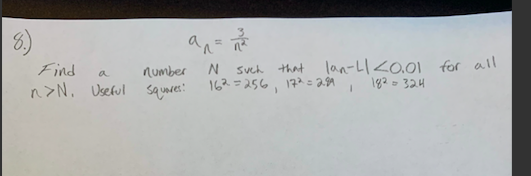 8.) aₙ = 3/n²
Find a number N such that |aₙ-L| < 0.01 for all
n>N. Useful squares: 16² = 256, 17² = 289, 18² = 324